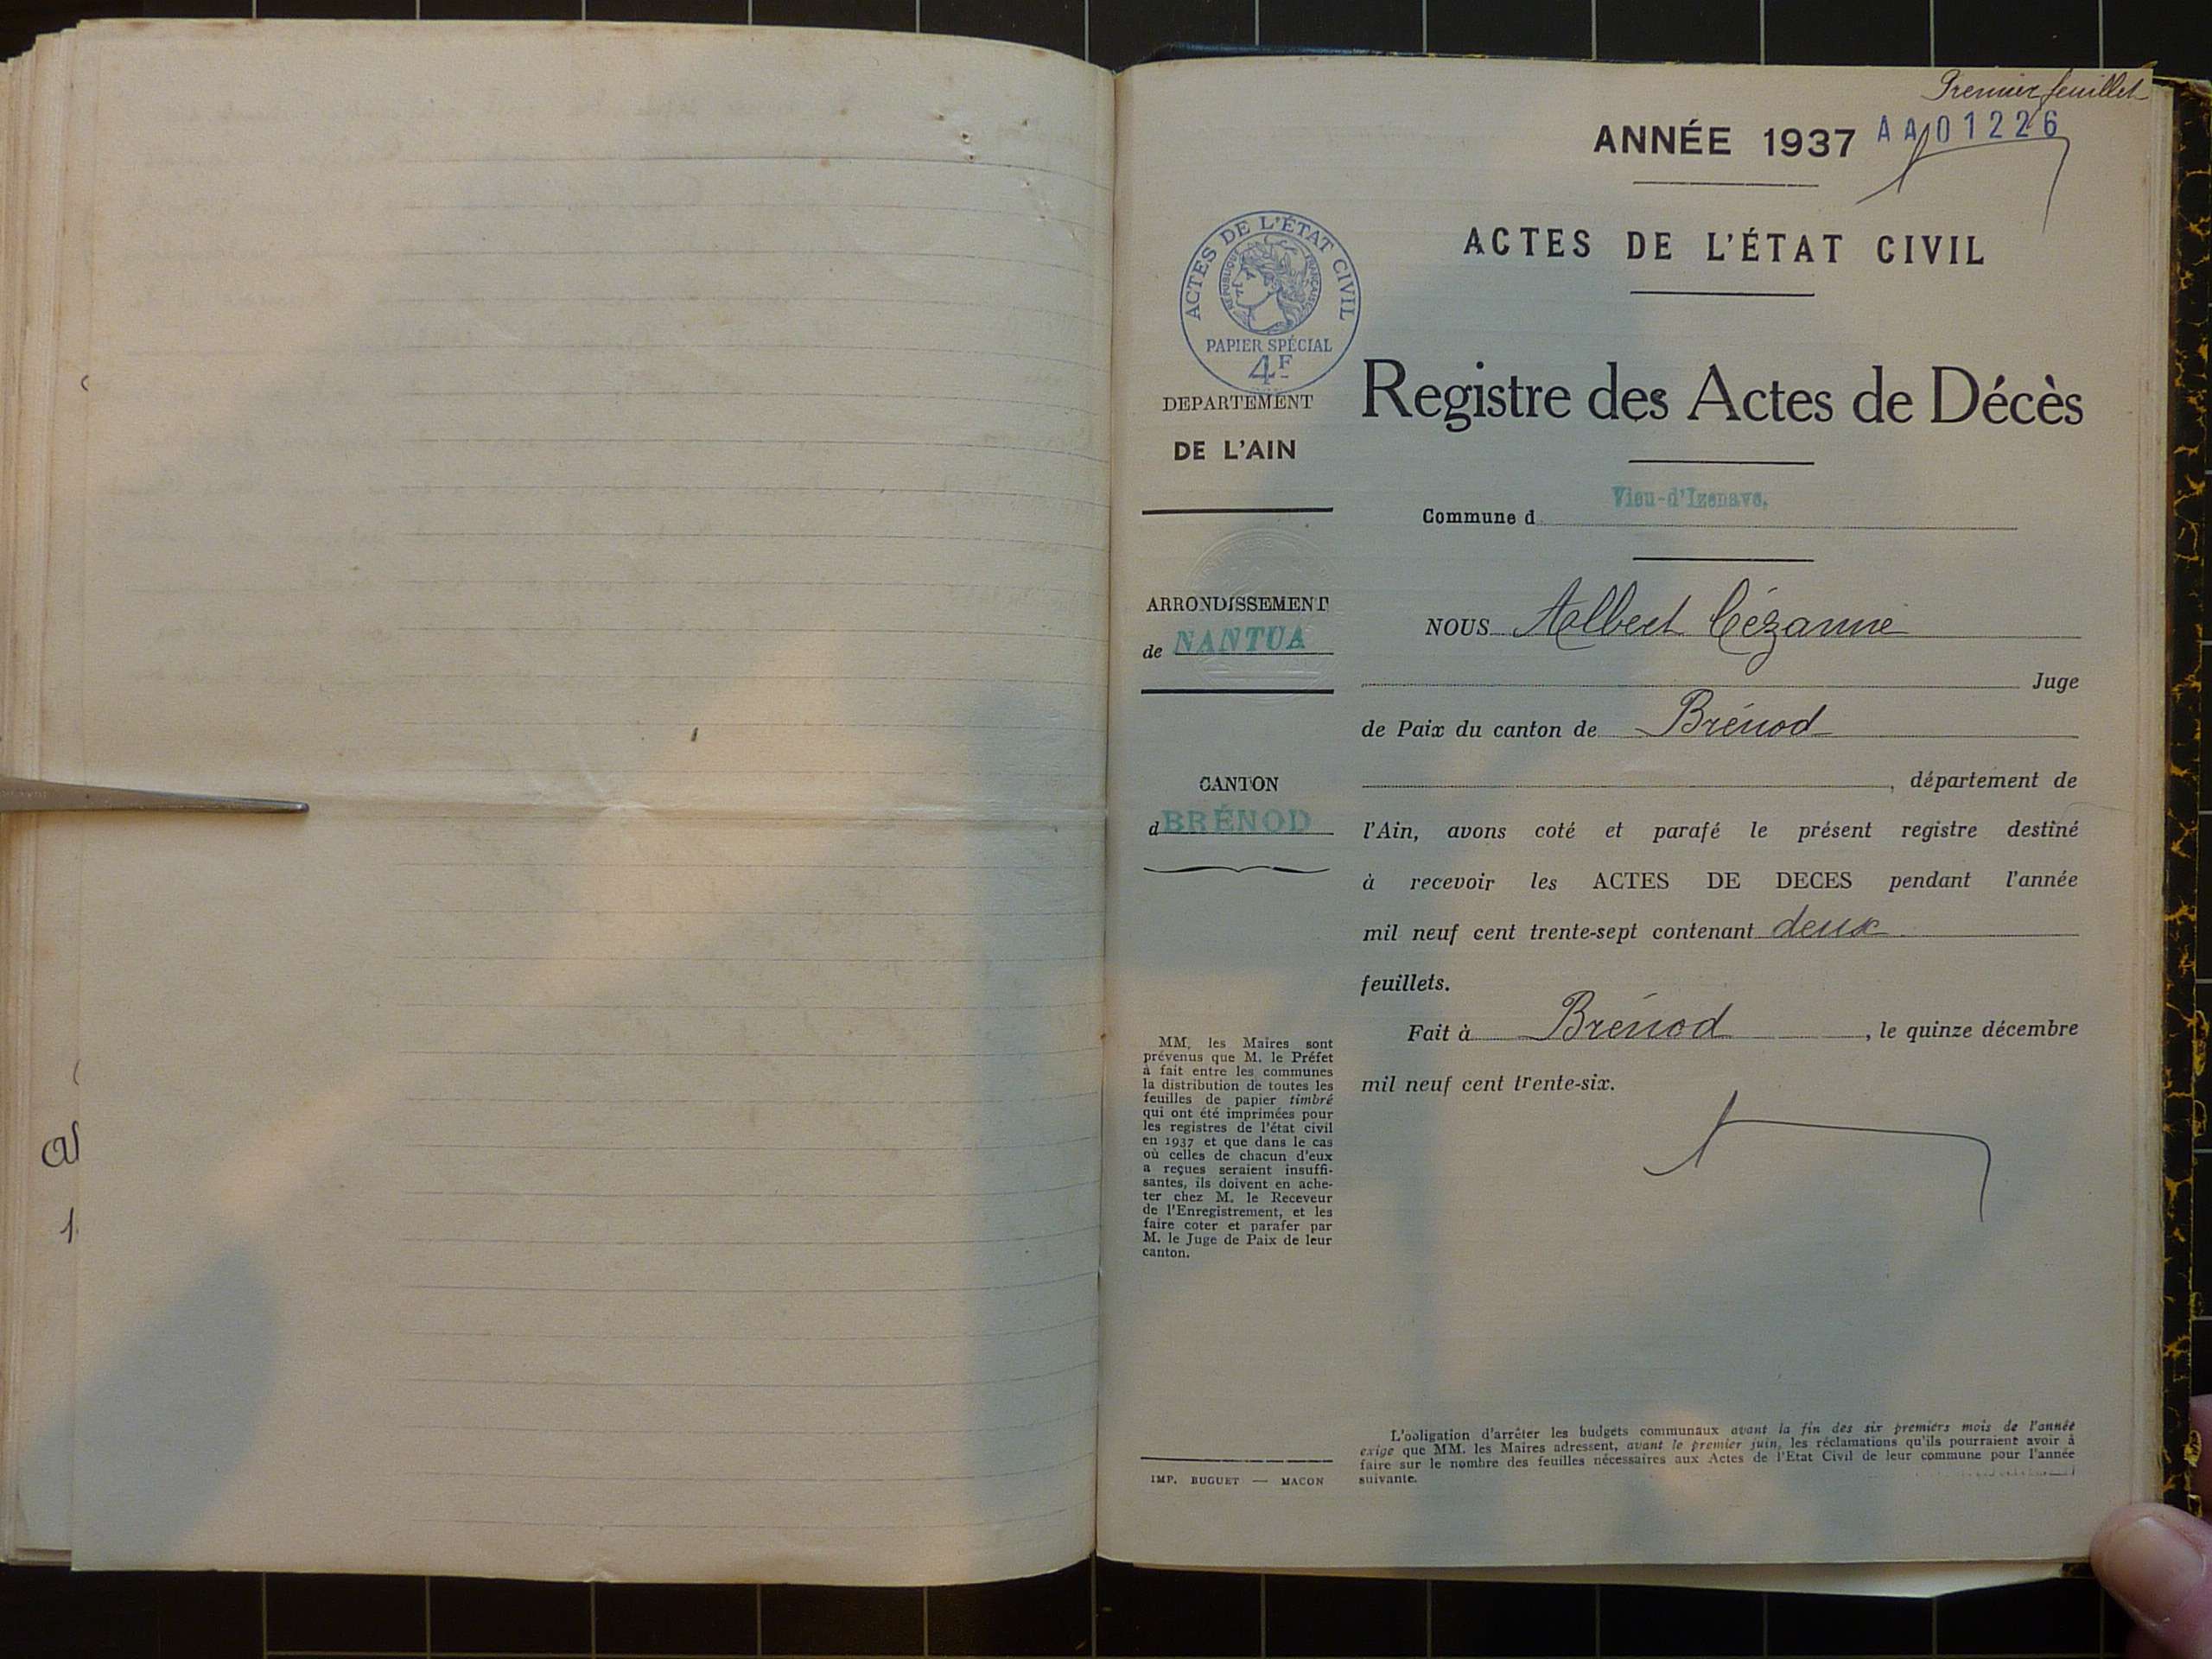 Premier feuillet
ANNÉE 1937 AA01226
ACTES DE L'ÉTAT CIVIL
ACTES DE L'ÉTAT CIVIL
RÉPUBLIQUE FRANÇAISE
PAPIER SPÉCIAL
4F
DEPARTEMENT
DE L'AIN
Registre des Actes de Décès
Vieu-d'Izenave,
Commune d
ARRONDISSEMENT
de NANTUA
NOUS Albert Cézanne
Juge
de Paix du canton de Brénod
CANTON
d BRÉNOD
, département de
l'Ain, avons coté et parafé le présent registre destiné
à recevoir les ACTES DE DECES pendant l'année
mil neuf cent trente-sept contenant deux
feuillets.
Fait à Brénod, le quinze décembre
mil neuf cent trente-six.
MM. les Maires sont
prévenus que M. le Préfet
à fait entre les communes
la distribution de toutes les
feuilles de papier timbré
qui ont été imprimées pour
les registres de l'état civil
en 1937 et que dans le cas
où celles de chacun d'eux
a reçues seraient insuffi-
santes, ils doivent en ache-
ter chez M. le Receveur
de l'Enregistrement, et les
faire coter et parafer par
M. le Juge de Paix de leur
canton.
IMP. BUGUET — MACON
L'obligation d'arrêter les budgets communaux avant la fin des six premiers mois de l'année
exige que MM. les Maires adressent, avant le premier juin, les réclamations qu'ils pourraient avoir à
faire sur le nombre des feuilles nécessaires aux Actes de l'Etat Civil de leur commune pour l'année
suivante.